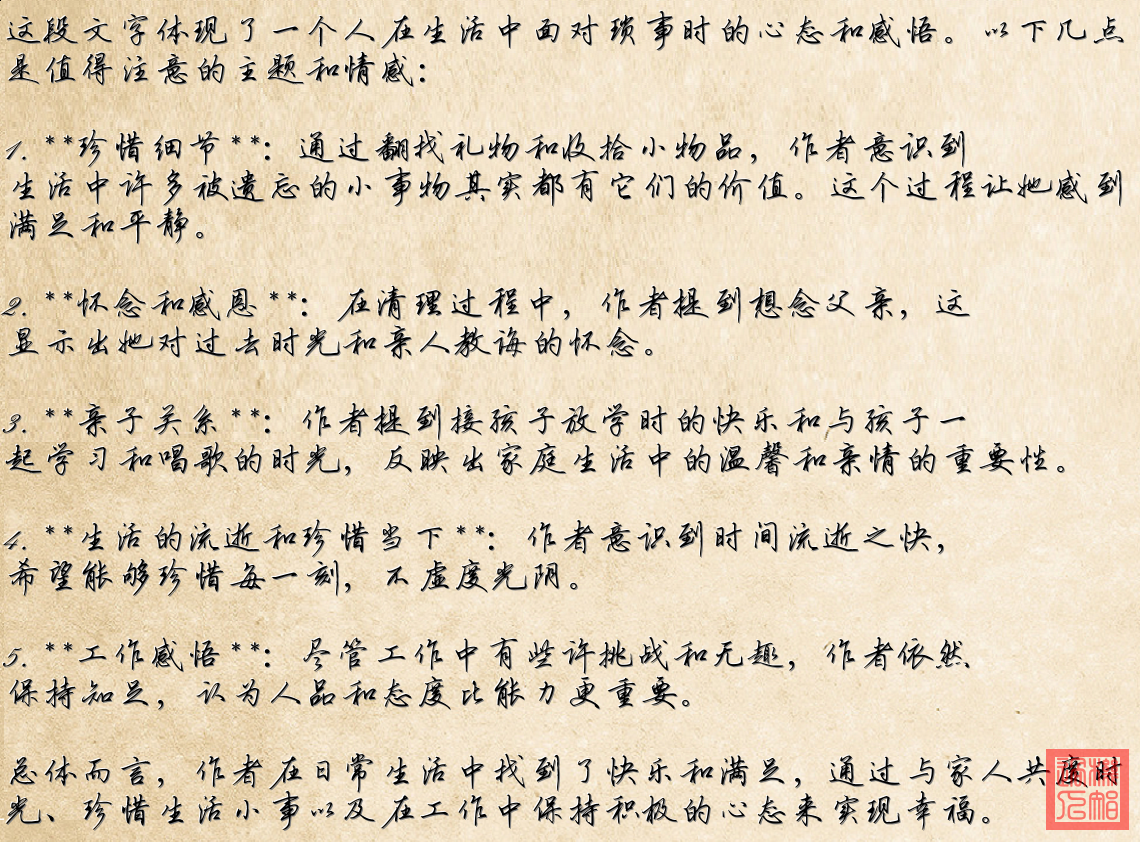 这段文字体现了一个人在生活中面对琐事时的心态和感悟。以下几点
是值得注意的主题和情感：
1. **珍惜细节**：通过翻找礼物和收拾小物品，作者意识到
生活中许多被遗忘的小事物其实都有它们的价值。这个过程让她感到
满足和平静。
2. **怀念和感恩**：在清理过程中，作者提到想念父亲，这
显示出她对过去时光和亲人教诲的怀念。
3. **亲子关系**：作者提到接孩子放学时的快乐和与孩子一
起学习和唱歌的时光，反映出家庭生活中的温馨和亲情的重要性。
4. **生活的流逝和珍惜当下**：作者意识到时间流逝之快，
希望能够珍惜每一刻，不虚度光阴。
5. **工作感悟**：尽管工作中有些许挑战和无趣，作者依然
保持知足，认为人品和态度比能力更重要。
总体而言，作者在日常生活中找到了快乐和满足，通过与家人共度时
光、珍惜生活小事以及在工作中保持积极的心态来实现幸福。